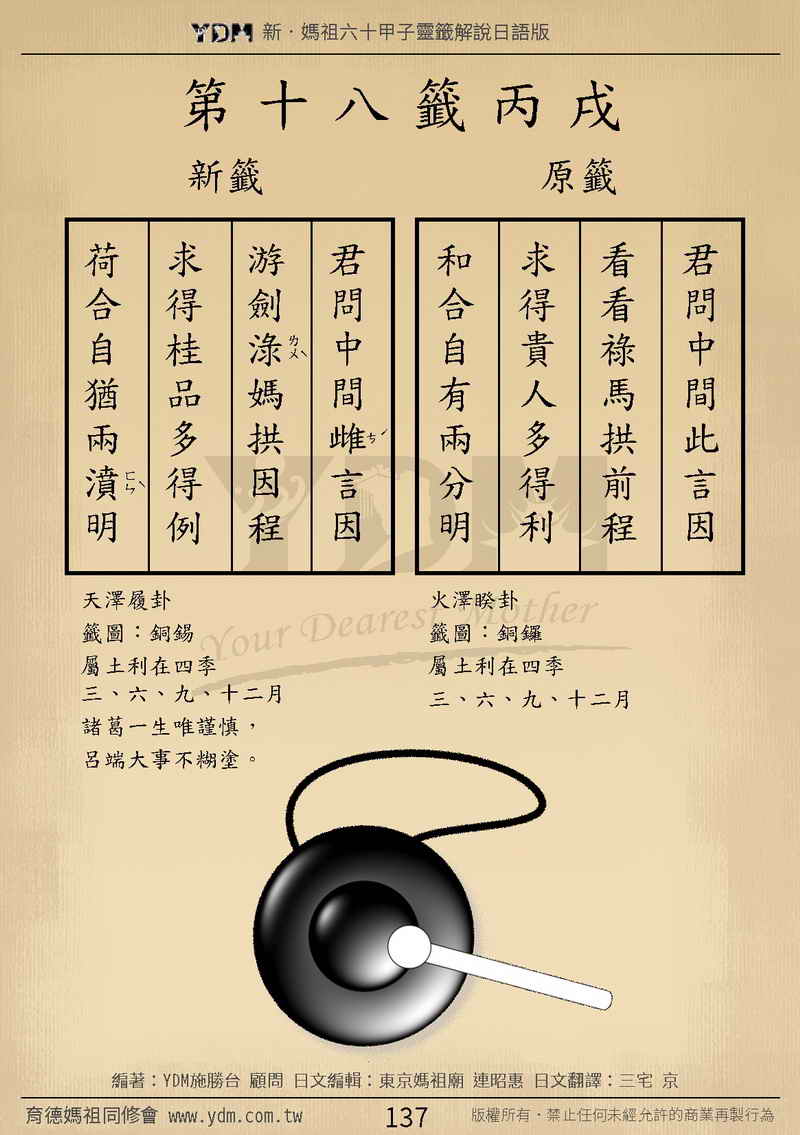 YDM 新．媽祖六十甲子靈籤解說日語版
第十八籤丙戌
原籤
君問中間此言因
看看祿馬拱前程
求得貴人多得利
和合自有兩分明
火澤睽卦
籤圖：銅鑼
屬土利在四季
三、六、九、十二月
新籤
君問中間雌ㄘˊ言因
游劍淥ㄌㄨˋ媽拱因程
求得桂品多得例
荷合自猶兩濆ㄈㄣˋ明
天澤履卦
籤圖：銅錫
屬土利在四季
三、六、九、十二月
諸葛一生唯謹慎，
呂端大事不糊塗。
YDM
Your Dearest Mother
編著：YDM施勝台 顧問 日文編輯：東京媽祖廟 連昭惠 日文翻譯：三宅 京
育德媽祖同修會 www.ydm.com.tw 137 版權所有．禁止任何未經允許的商業再製行為